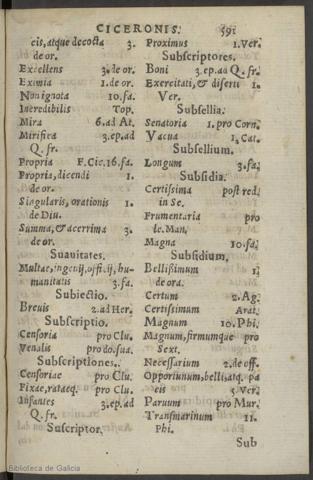 CICERONIS. 591
cis, atque decocta 3.
de or.
Excellens 3. de or.
Eximia 1. de or.
Non ignota 10. fa.
Incredibilis Top.
Mira 6. ad At.
Mirifica 3. ep. ad
Q. fr.
Propria F. Cic. 16. fa.
Propria, dicendi 1.
de or.
Singularis, orationis 1.
de Diu.
Summa, & acerrima 3.
de or.
Suauitates.
Multae, ingenij, officij, hu-
manitatis 3. fa.
Subiectio.
Breuis 2. ad Her.
Subscriptio.
Censoria pro Clu.
Venalis pro do. sua.
Subscriptiones.
Censoriae pro Clu.
Fixae, rataeq. pro Clu.
Infantes 3. ep. ad
Q. fr.
Suscriptor.
Proximus 1. Ver.
Subscriptores.
Boni 3. ep. ad Q. fr.
Exercitati, & diserti 1.
Ver.
Subsellia.
Senatoria 1. pro Corn.
Vacua 1, Cat.
Subsellium.
Longum 3. fa.
Subsidia.
Certissima post red.
in Se.
Frumentaria pro
le. Man.
Magna 10. fa.
Subsidium.
Bellissimum 1.
de ora.
Certum 2. Ag.
Certissimum Arat.
Magnum 10. Phi.
Magnum, firmumque pro
Sext.
Necessarium 2. de off.
Opportunum, belli, atq. pa
cis 5. Ver.
Paruum pro Mur.
Transmarinum 11.
Phi.
Sub
Biblioteca de Galicia